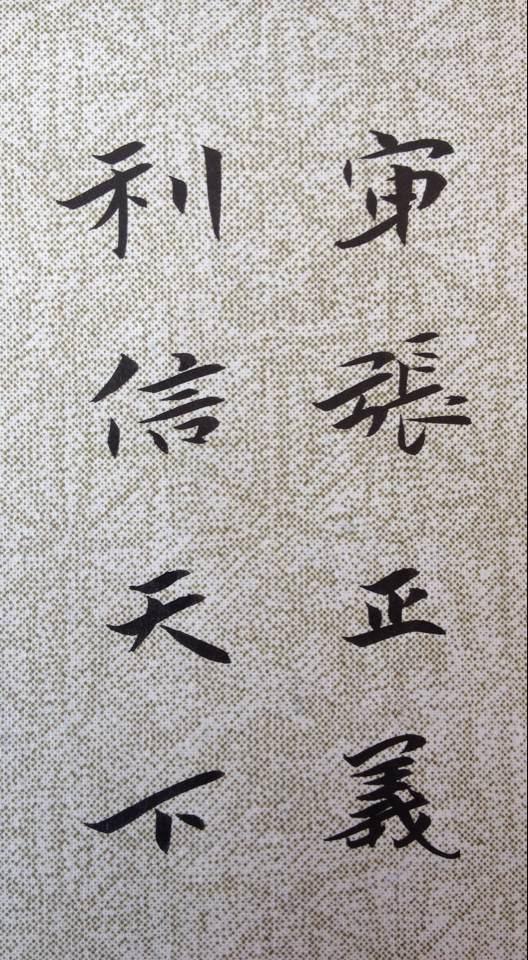 張正義
利信天下